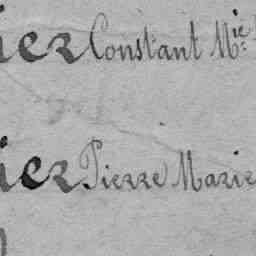 ier Constant M.ie
ier Pierre Marie